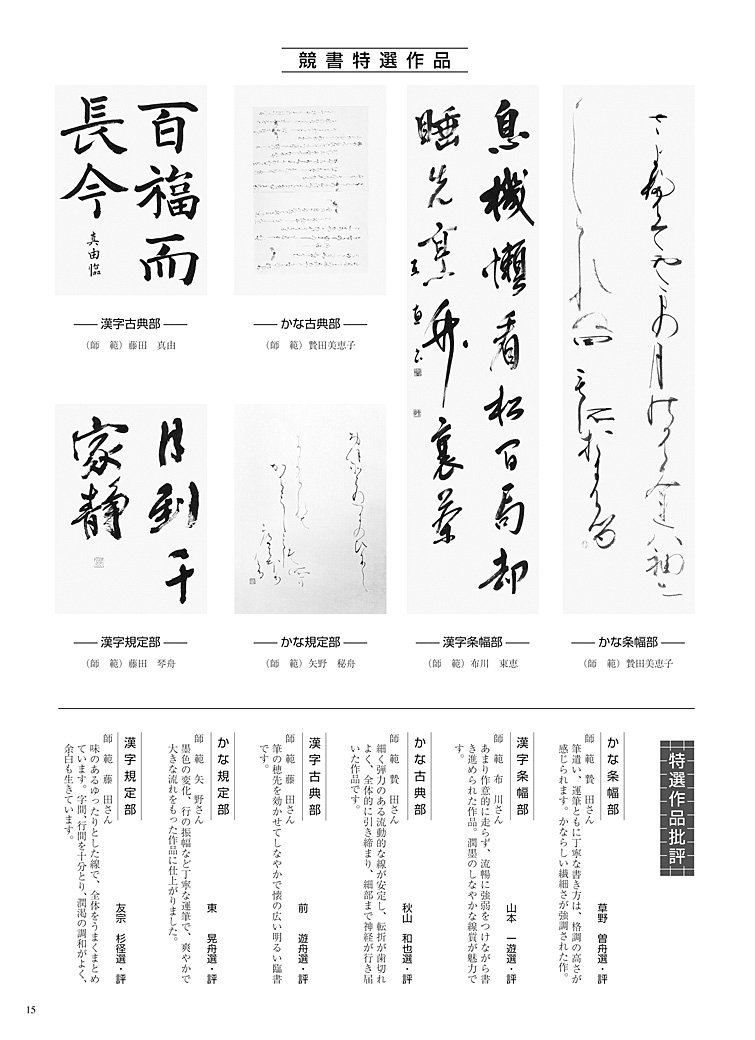 競書特選作品
百福而
長今
真由臨
漢字古典部
(師 範)藤田 真由
かな古典部
(師 範)贄田美恵子
息機懶看松百局却
睡先烹
裏茶
漢字条幅部
(師 範)布川 東恵
かな条幅部
(師 範)贄田美恵子
月到千
家静
漢字規定部
(師 範)藤田 琴舟
かな規定部
(師 範)矢野 秘舟
特選作品批評
かな条幅部
草野 曽舟選・評
師 範 贄 田さん
筆遣い、運筆ともに丁寧な書き方は、格調の高さが
感じられます。かならしい繊細さが強調された作。
漢字条幅部
山本 一遊選・評
師 範 布 川さん
あまり作意的に走らず、流暢に強弱をつけながら書
き進められた作品。潤墨のしなやかな線質が魅力で
す。
かな古典部
秋山 和也選・評
師 範 贄 田さん
細く弾力のある流動的な線が安定し、転折が歯切れ
よく、全体的に引き締まり、細部まで神経が行き届
いた作品です。
漢字古典部
前 遊舟選・評
師 範 藤 田さん
筆の穂先を効かせてしなやかで懐の広い明るい臨書
です。
かな規定部
東 晃舟選・評
師 範 矢 野さん
墨色の変化、行の振幅など丁寧な運筆で、爽やかで
大きな流れをもった作品に仕上がりました。
漢字規定部
友宗 杉径選・評
師 範 藤 田さん
味のあるゆったりとした線で、全体をうまくまとめ
ています。字間、行間を十分とり、潤渇の調和がよく、
余白も生きています。
15